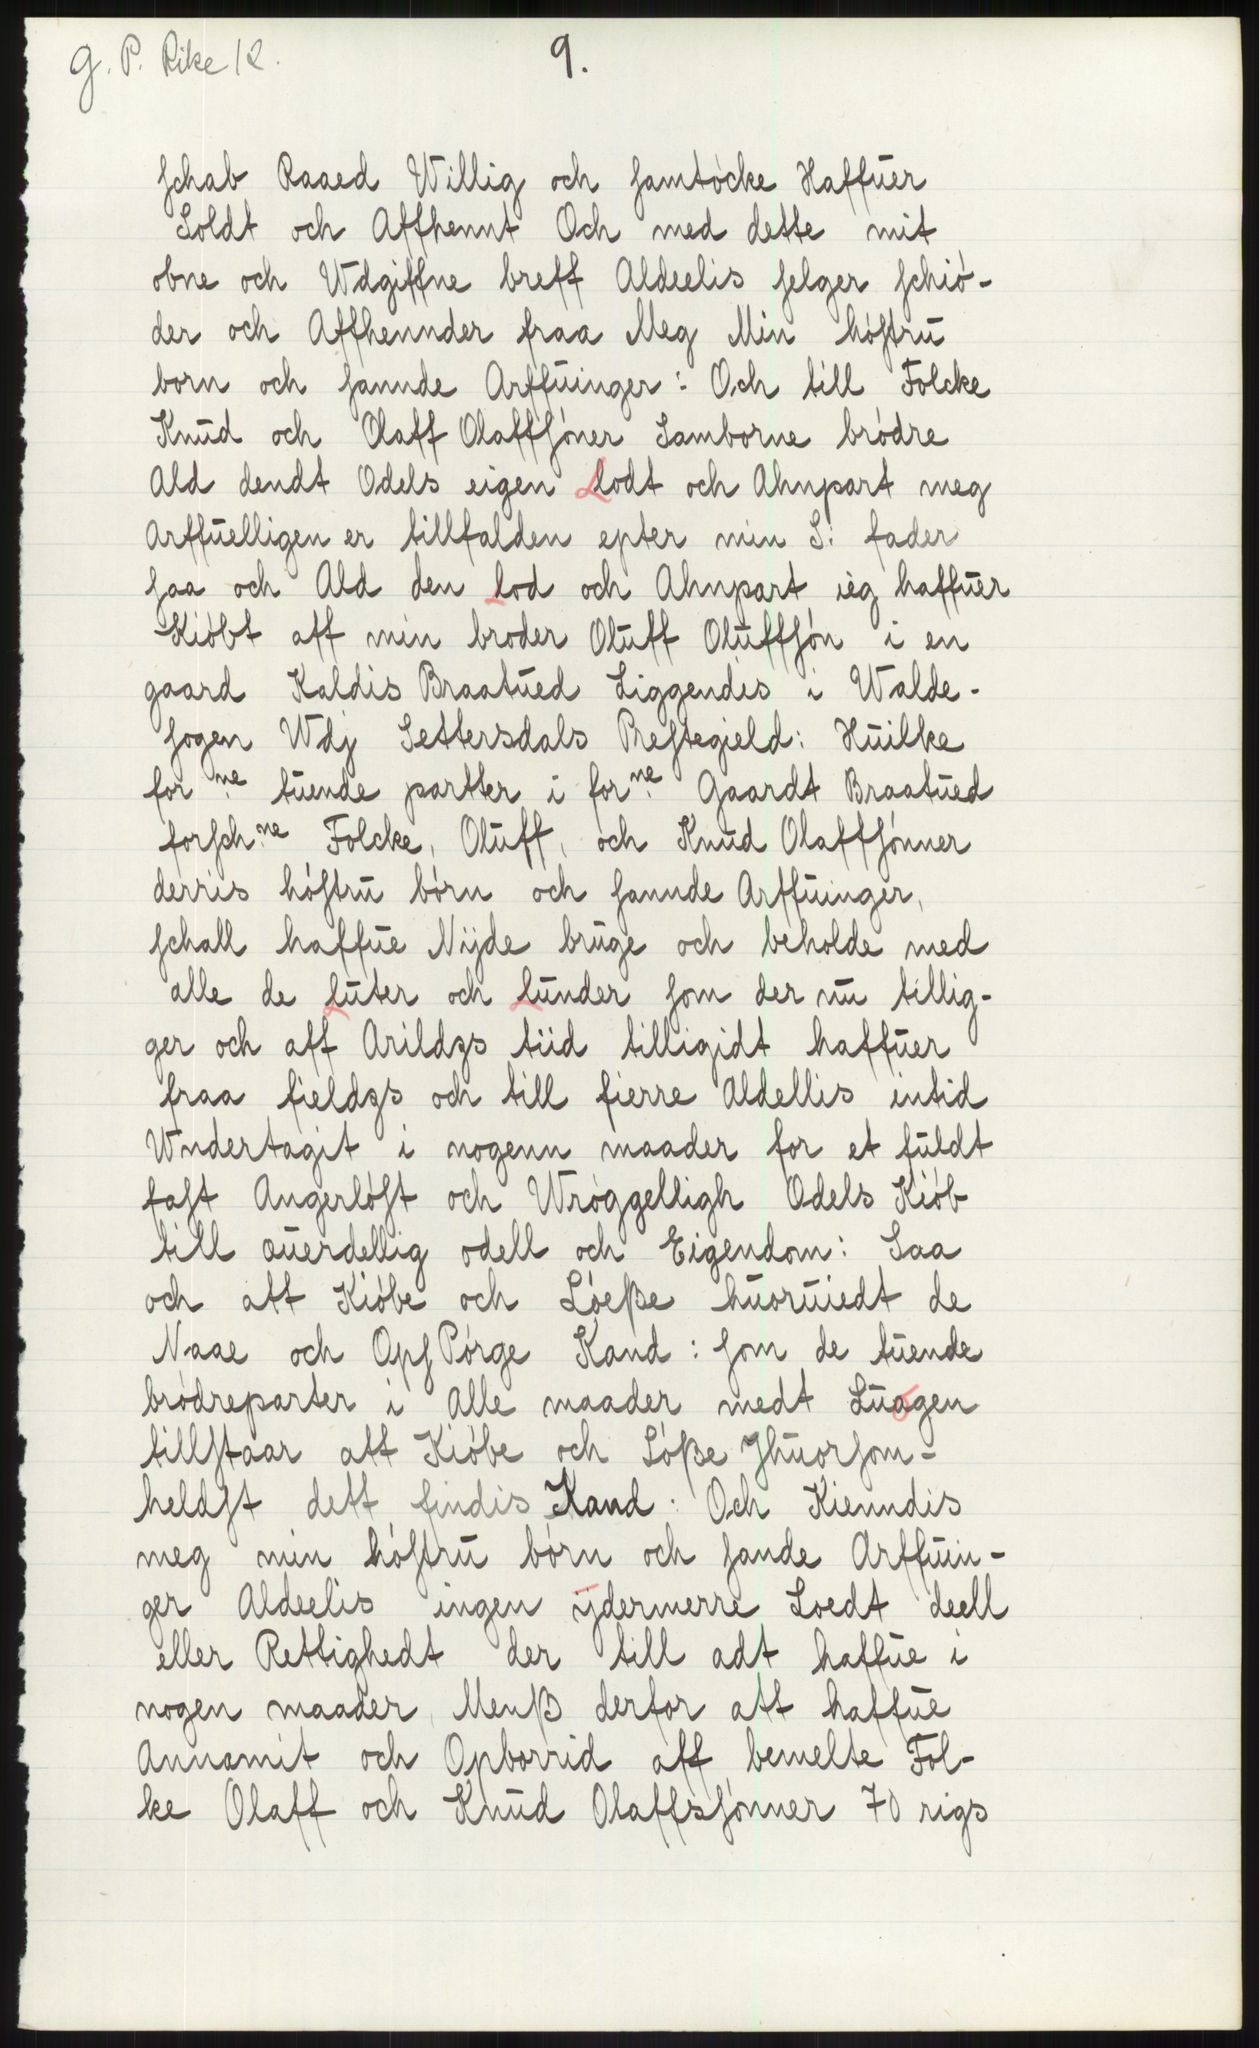 G. P. Rike 12.
9.
schab Raaed Willig och samtócke Haffuer
Soldt och Affhennt Och med dette mit
obne och Wdgiffne breff Aldeelis selger schió-
der och Affhennder fraa Meg Min hóstru
born och sannde Arffuinger: Och till Folcke
Knud och Olaff Olaffsóner Samborne bródre
Ald dendt Odels eigen Lodt och Ahnpart meg
Arffuelligen er tillfalden epter min S: fader
saa och Ald den Lod och Ahnpart ieg haffuer
Kióbt aff min broder Oluff Oluffsón i en
gaard Kaldis Braatued Liggendis i Walde-
sogen Wdj Settersdals Prestegield: Huilke
for ne tuende partter i for ne Gaardt Braatued
forsch. ne Folcke, Oluff, och Knud Olaffsónner
derris hóstru bórn och sannde Arffuinger,
schall haffue Nijde bruge och beholde med
alle de Luter och Lunder som der nu tillig-
ger och aff Arildgs tiid tilligidt haffuer
fraa fieldgs och till fierre Aldellis intid
Wndertagit i nogenn maader for et fuldt
fast Angerlóst och Wróggelligh Odels Kiób
till ouerdellig odell och Eigendom: Saa
och att Kióbe och Lóeße huoruiedt de
Naae och Opspórge Kand: som de tuende
bródreparter i Alle maader medt Luagen
tillstaar att Kióbe och Lóße Ihuorsom-
heldst dett findis Kand: Och Kienndis
meg min hóstru bórn och sande Arffuin-
ger Aldeelis ingen ÿdermerre Loedt deell
eller Rettighedt der till adt haffue i
nogen maader, Menß derfor att haffue
Annamit och Opborrid aff bemelte Fol-
ke Olaff och Knud Olaffssónner 70 rigs